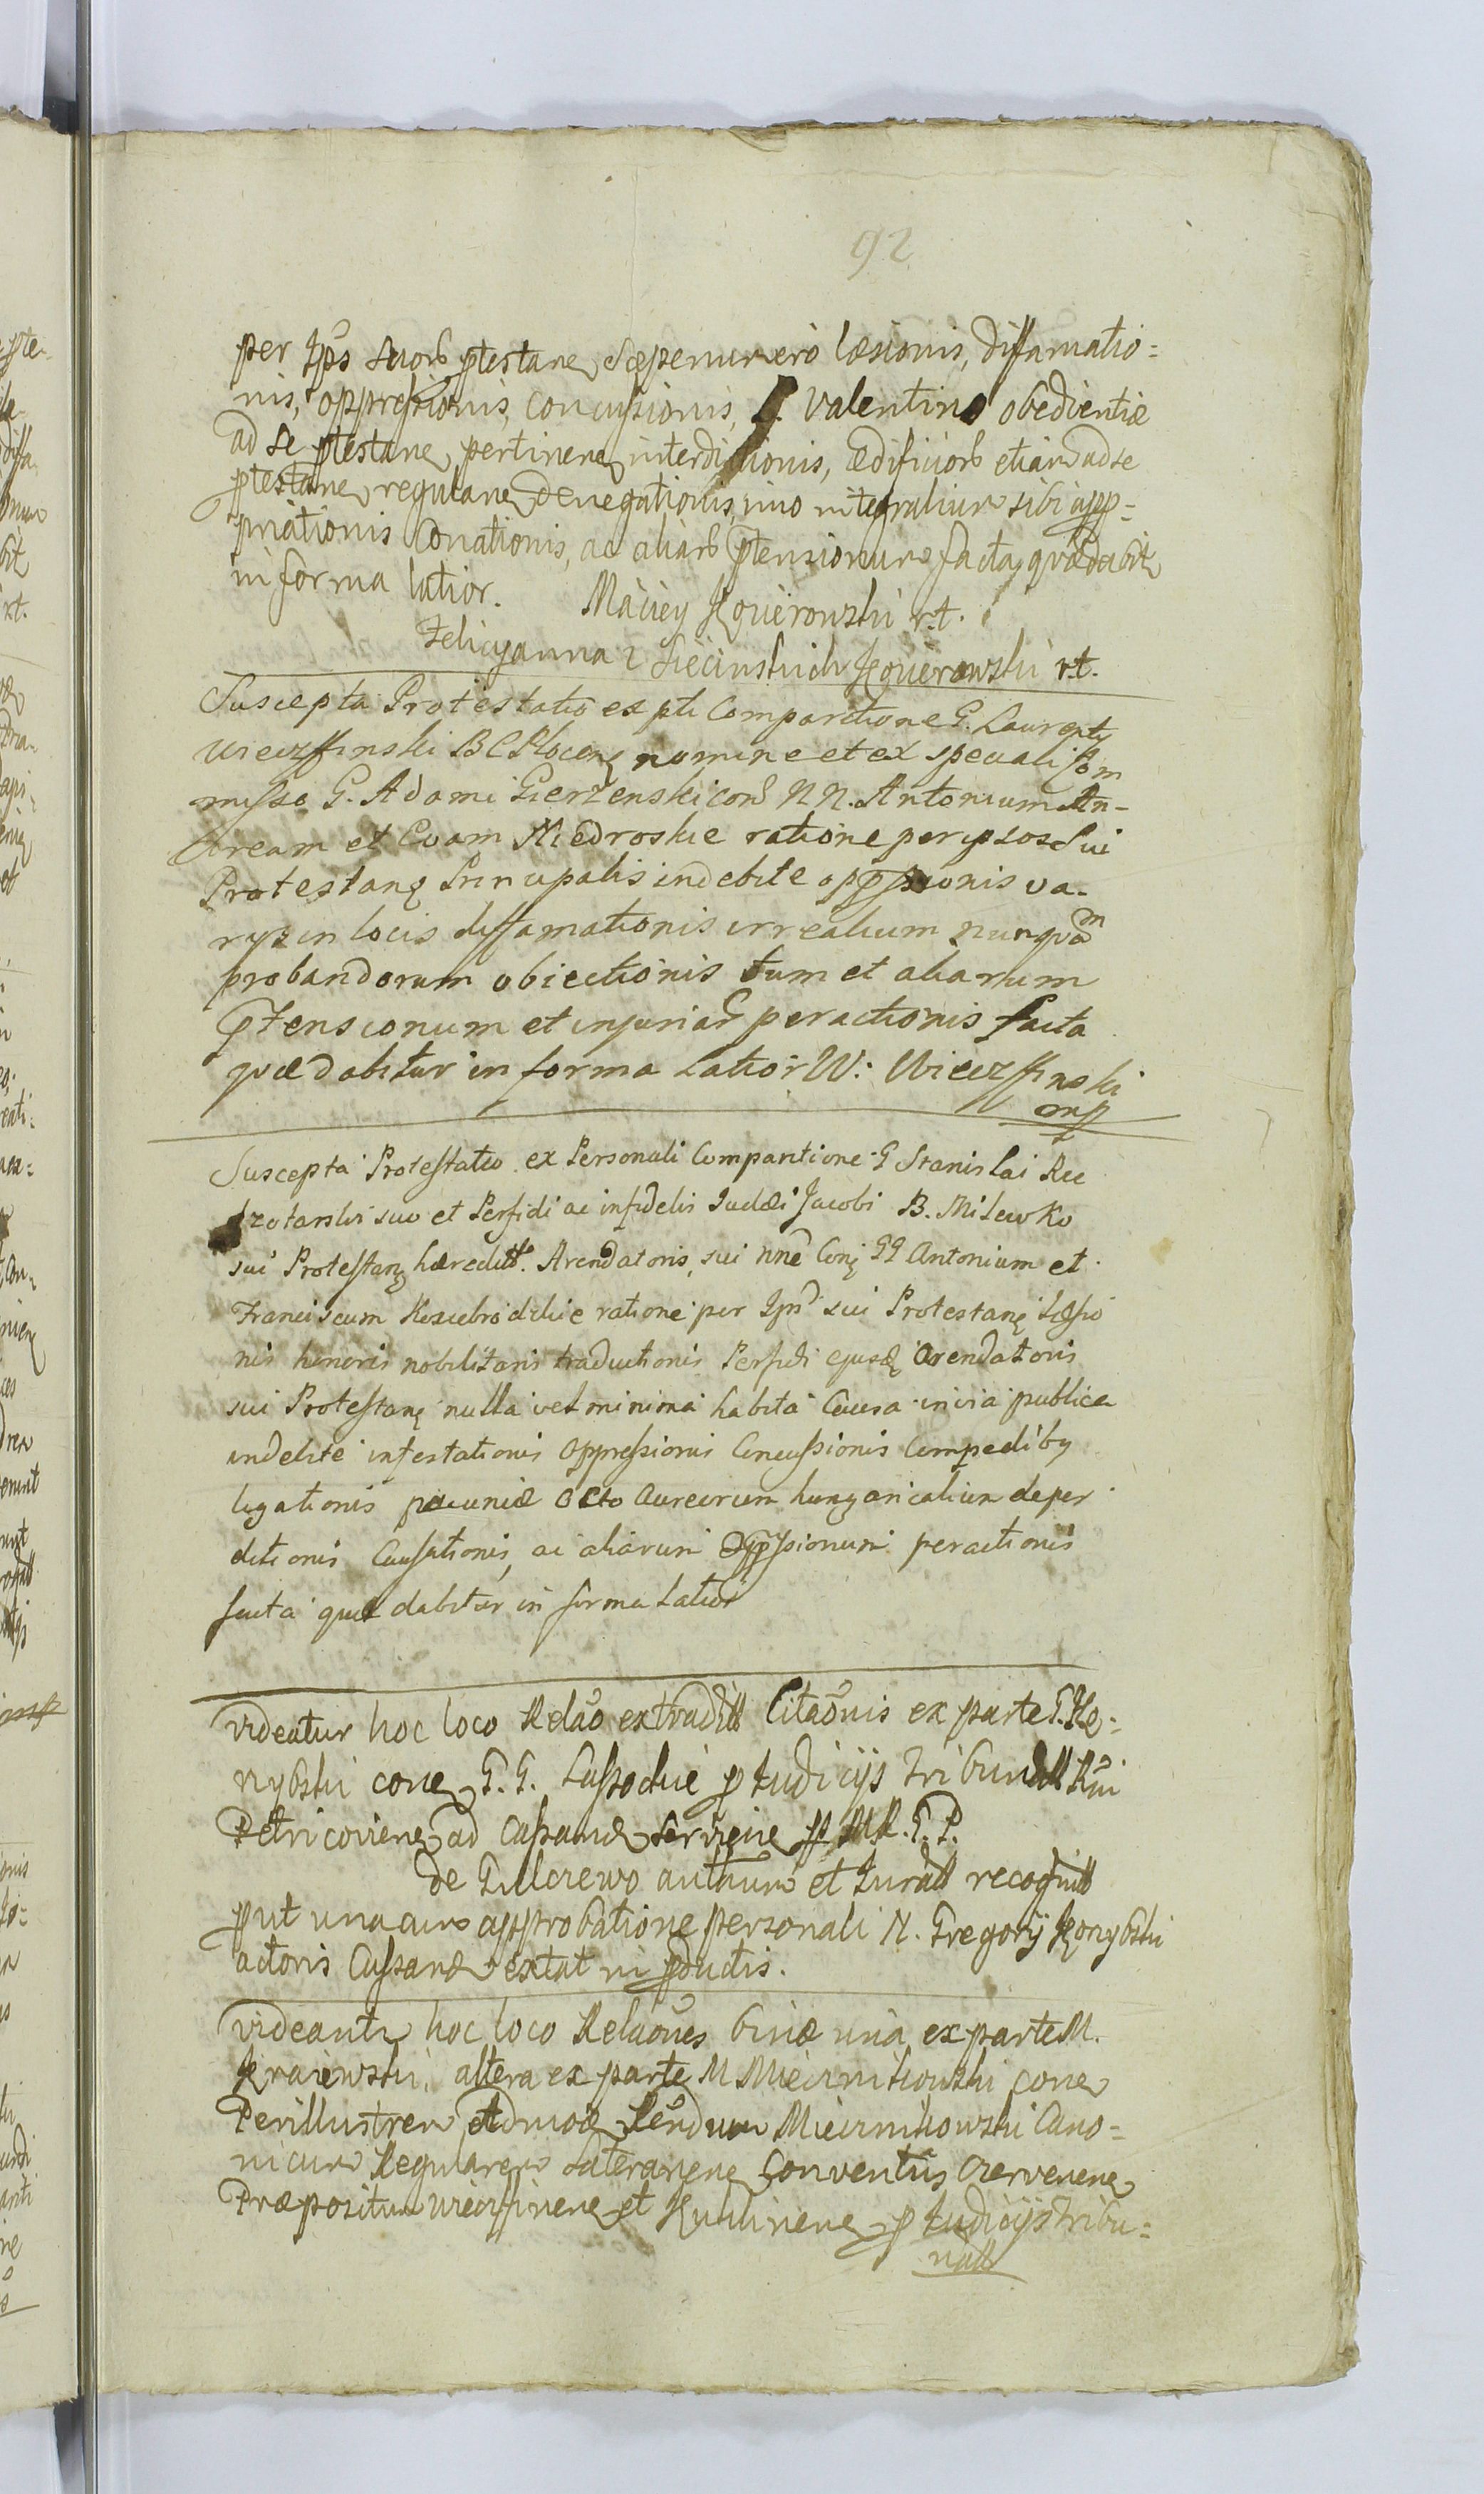 92
per Ip̃s suorũ ptestane, sæpenumero læsionis, diffamatio=
nis, oppressionis, concussionis, G. Valentino obedientiæ
ad se ptestane, pertinene, interdictionis, ædificiorũ etiam ad se
ptestane, regulane, denegationis, imo integralium sibi app=
priationis conationis, ac aliarũ ptensionum facta, quæ dabitr
in forma latior. Maciey
Felicyanna z r.t.
Suscepta Protestatio ex pli Comparitione G. Laurenty
Wieczffinski BC Plocen, nomine et ex speciali com
misso G. Adami Gierzenski con NN. Antonium An-
dream et Evam Niedroskie ratione per ipsos Sui
Protestang Principalis indebite oppssionis va-
rys in locis diffamationis irrealium nunquam
probandorum obiectionis tum et aliarum
Ptensionum et injuriar peractionis facta
quæ dabitur in forma Latior W: Wieczffinski
mp
Suscepta Protestatio ex Personali Comparitione G Stanislai
suo et Perfidi ac infidelis Judæi Jacobi B. Milewko
sui Protestang hæredit. Arendatoris, sui nne Con, GG Antonium et
Franciscum ratione per Ipm sui Protestang Læsio
nis honoris nobilitaris traductionis Perfidi ejusd, Arendatoris
sui Protestang nulla vel minima habita Causa in via publica
indebite infestationis Oppressionis Concussionis Compedibg
ligationis pæcuniæ Octo Aureorum hungaricalium deper
ditionis Causationis, ac aliarum Oppssionum peractionis
facta quæ dabitur in forma Latior
Videatur hoc loco Relao extradit Citaonis ex parte G. Ko=
nybski cone, G.G. Lassockie p Judicijs Tribunall Rni
Petricoviene, ad Cassand, serviene, p M.R.G.P.
de Gulczewo authum et Jurall recognit
put una cum approbatione personali N. Gregorij Konybski
actoris Cassand, extat in pductis.
Videantr hoc loco Relaones binæ una ex parte M.
Kraiewski, altera ex parte M Miecznikowski cone,
Perillustrem Admod, Rendum Miecznikowski Cano=
nicum Regularem Lateranene, Conventus Czervenene,
Præpositum Wieczffinene, et p Judicijs Tribu=
nall